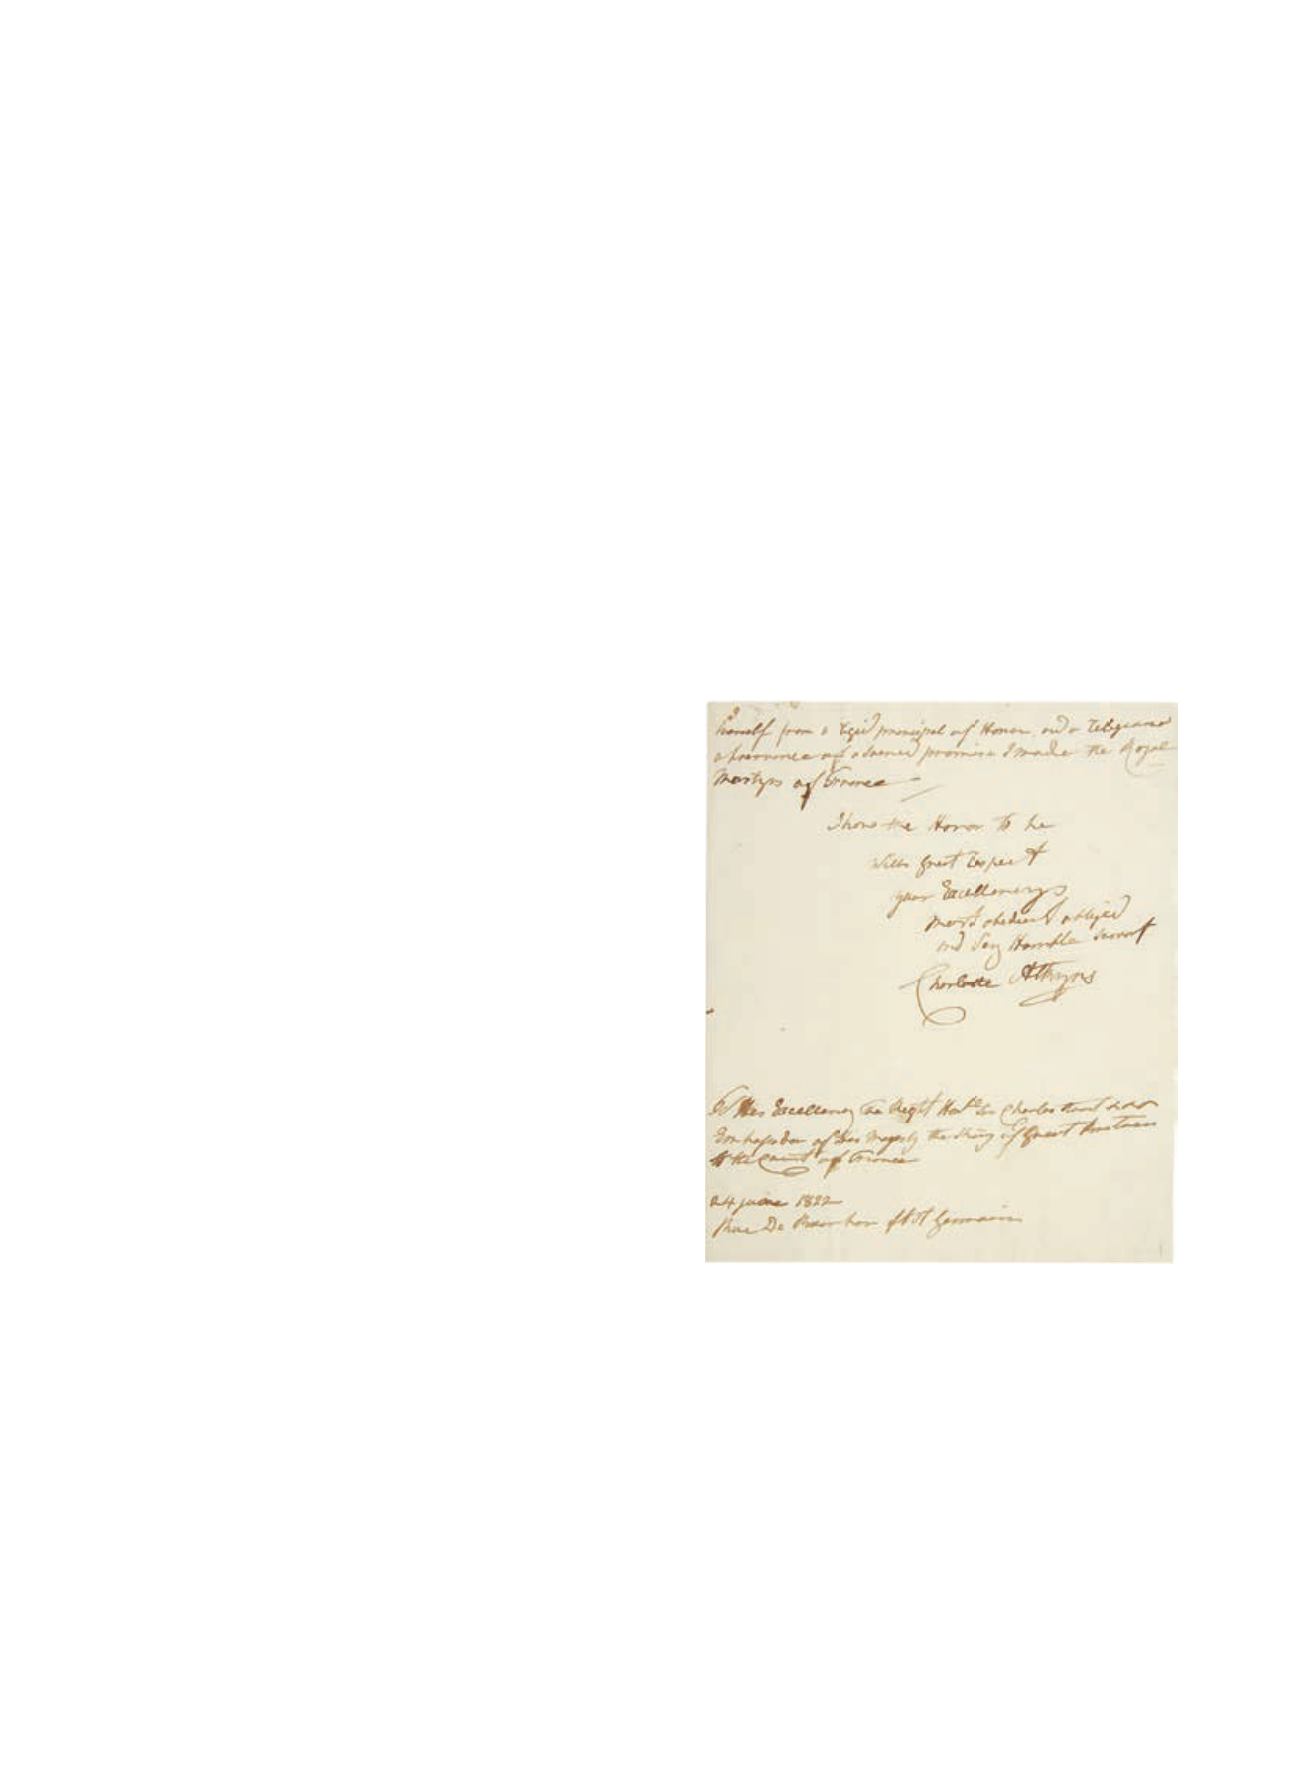 herself from a rigid principal of Honor and a religious
observance of a sacred promise I made the Royal
Martyrs of France
I have the Honor to be
With great respect
your Excellencys
most obedient obliged
and very Humble servant
Charlotte Atkyns
To His Excellency the Right Hon.ble Sir Charles
Embassador of his Majesty the King of Great Britain
to the Court of France
24 june 1822
Rue De fbt St Germain